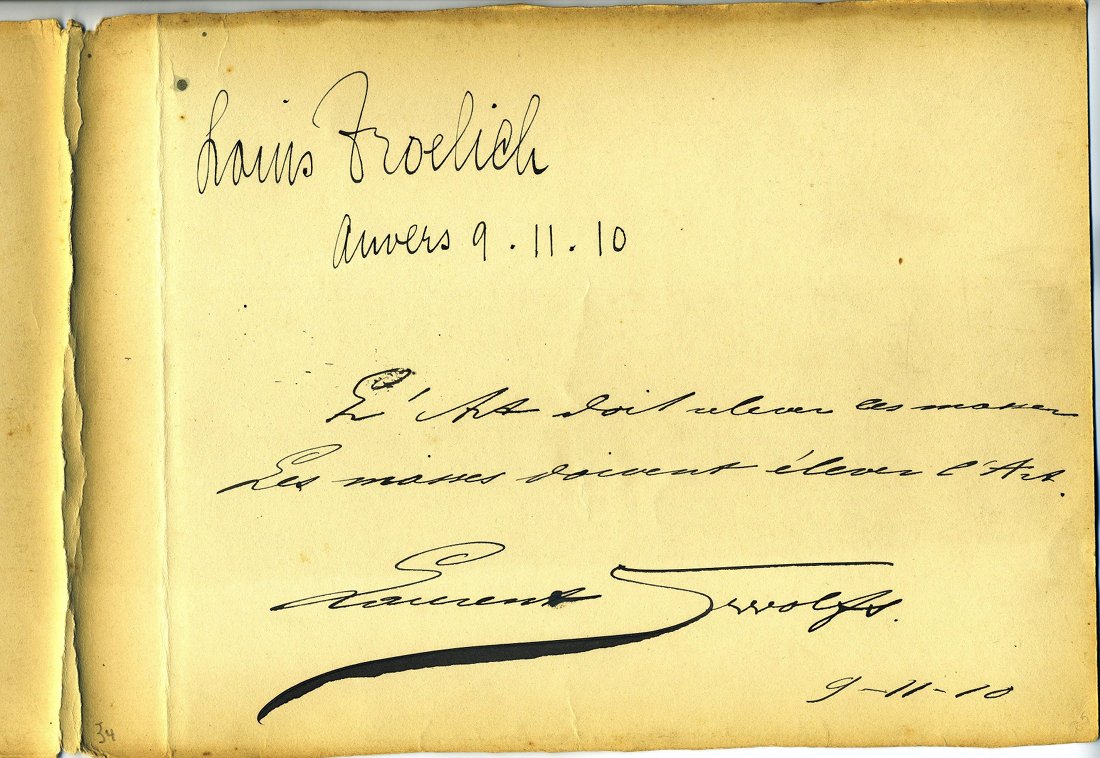 Louis Froelich
Anvers 9.11.10
L'Art doit elever les masses
Les masses doivent élever l'Art.
Laurent Swolfs.
9-11-10
34